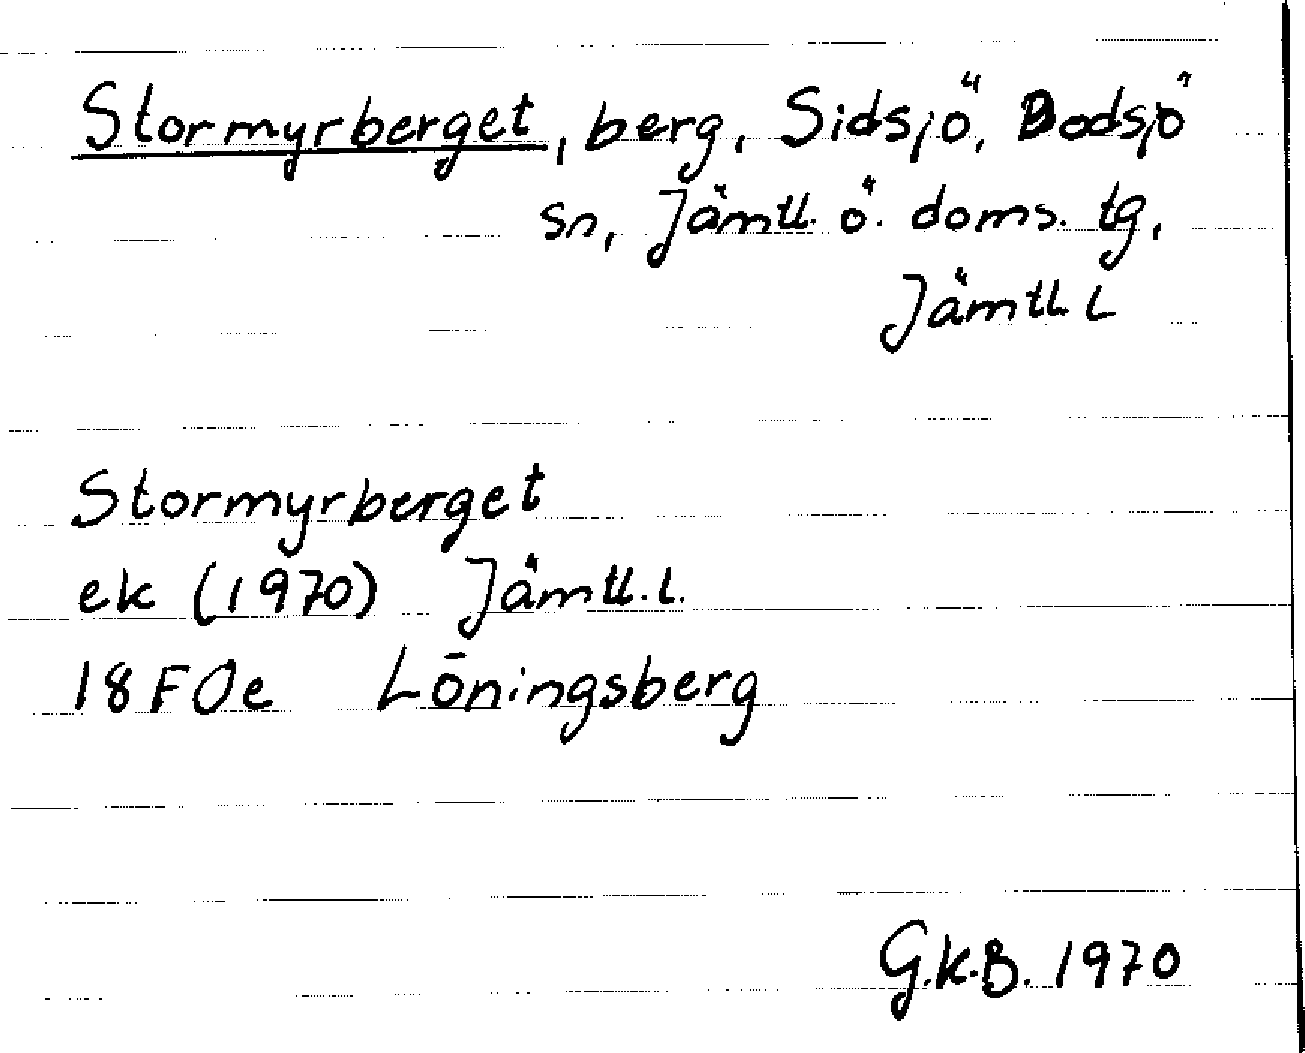 Stormyrberget, berg, Sidsjö, Bodsjö
sn, Jämtl. ö. doms. tg,
Jämtl. L
Stormyrberget
ek (1970) Jämtl. L.
18F0e Löningsberg
G.K.B. 1970